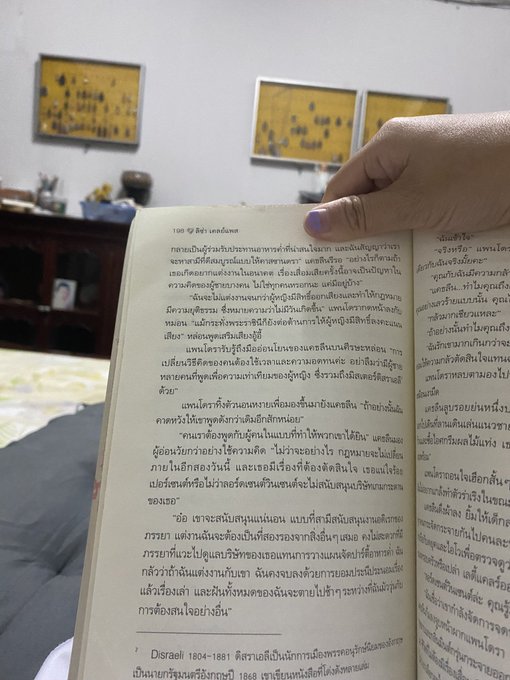 198 ลิซ่า เคลย์แพส
กลายเป็นผู้ร่วมรับประทานอาหารค่ำที่น่าสนใจมาก และฉันสัญญาว่าเรา
จะหาสามีที่ดีสมบูรณ์แบบให้คาสซานดรา" แคธลีนรีรอ "อย่างไรก็ตามถ้า
เธอเกิดอยากแต่งงานในอนาคต เรื่องเสื่อมเสียครั้งนี้อาจเป็นปัญหาใน
ความคิดของผู้ชายบางคน ไม่ใช่ทุกคนหรอกนะ แค่มีอยู่บ้าง"
"ฉันจะไม่แต่งงานจนกว่าผู้หญิงมีสิทธิ์ออกเสียงและทำให้กฎหมาย
มีความยุติธรรม ซึ่งหมายความว่าไม่มีวันเกิดขึ้น" แพนโดรากดหน้าลงกับ
หมอน "แม้กระทั่งพระราชินีก็ยังต่อต้านการให้ผู้หญิงมีสิทธิ์ลงคะแนน
เสียง" หล่อนพูดเสริมเสียงอู้อี้
แพนโดรารับรู้ถึงมืออ่อนโยนของแคธลีนบนศีรษะหล่อน "การ
เปลี่ยนวิธีคิดของคนต้องใช้เวลาและความอดทนค่ะ อย่าลืมว่ามีผู้ชาย
หลายคนที่พูดเพื่อความเท่าเทียมของผู้หญิง ซึ่งรวมถึงมิสเตอร์ดิสราเอลี²
ด้วย"
แพนโดราทิ้งตัวนอนหงายเพื่อมองขึ้นมายังแคธลีน "ถ้าอย่างนั้นฉัน
คาดหวังให้เขาพูดดังกว่าเดิมอีกสักหน่อย"
"คนเราต้องพูดกับผู้คนในแบบที่ทำให้พวกเขาได้ยิน" แคธลีนมอง
ผู้อ่อนวัยกว่าอย่างใช้ความคิด "ไม่ว่าจะอย่างไร กฎหมายจะไม่เปลี่ยน
ภายในอีกสองวันนี้ และเธอมีเรื่องที่ต้องตัดสินใจ เธอแน่ใจร้อย
เปอร์เซนต์หรือไม่ว่าลอร์ดเซนต์วินเซนต์จะไม่สนับสนุนบริษัทเกมกระดาน
ของเธอ"
"อ๋อ เขาจะสนับสนุนแน่นอน แบบที่สามีสนับสนุนงานอดิเรกของ
ภรรยา แต่งานฉันจะต้องเป็นที่สองรองจากสิ่งอื่นๆ เสมอ คงไม่สะดวกที่มี
ภรรยาที่แวะไปดูแลบริษัทของเธอแทนการวางแผนจัดปาร์ตี้อาหารค่ำ ฉัน
กลัวว่าถ้าฉันแต่งงานกับเขา ฉันคงจบลงด้วยการยอมประนีประนอมเรื่อง
แล้วเรื่องเล่า และฝันทั้งหมดของฉันจะตายไปช้าๆ ระหว่างที่ฉันมัววุ่นกับ
การต้องสนใจอย่างอื่น"
² Disraeli 1804-1881 ดิสราเอลีเป็นนักการเมืองพรรคอนุรักษ์นิยมของอังกฤษ
เป็นนายกรัฐมนตรีอังกฤษปี 1868 เขาเขียนหนังสือที่โด่งดังหลายเล่ม
"ฉันเข้าใจ"
"จริงหรือ" แพนโด
เดียวกับฉันจริงมั้ยคะ"
"คุณกับฉันมีความกล้า
"แคธลีน...ทำไมคุณถึง
"กลัวมากเชียวแหละ"